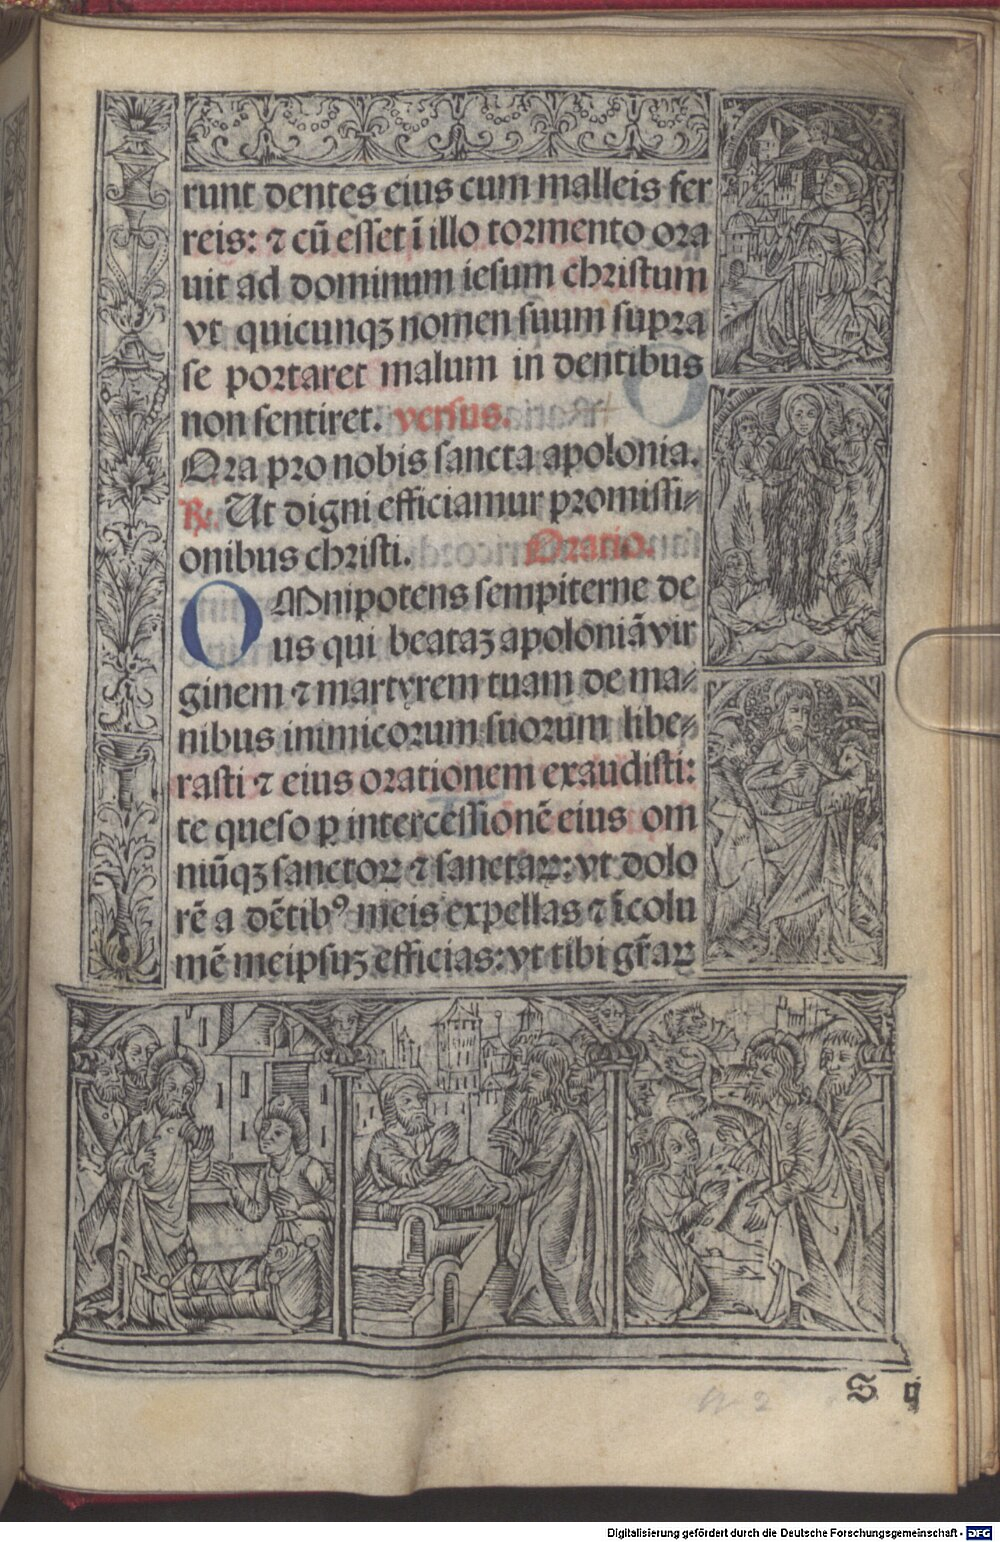 runt dentes eius cum malleis fer
reis: ⁊ cū esset ī illo tormento ora
uit ad dominum iesum christum
vt quicunqꝫ nomen suum supra
se portaret malum in dentibus
non sentiret. versus.
Ora pro nobis sancta apolonia.
℟. Ut digni efficiamur promissi⸗
onibus christi. Oratio.
OMnipotens sempiterne de
us qui beataꝫ apoloniā vir
ginem ⁊ martyrem tuam de ma⸗
nibus inimicorum suorum libe⸗
rasti ⁊ eius orationem exaudisti:
te queso ꝑ intercessionē eius om
niūqꝫ sanctoꝝ ⁊ sanctaꝝ: vt dolo
rē a dētibꝰ meis expellas ⁊ īcolu
mē meipsuꝫ efficias: vt tibi gr̄aꝝ
S ij
Digitalisierung gefördert durch die Deutsche Forschungsgemeinschaft - DFG